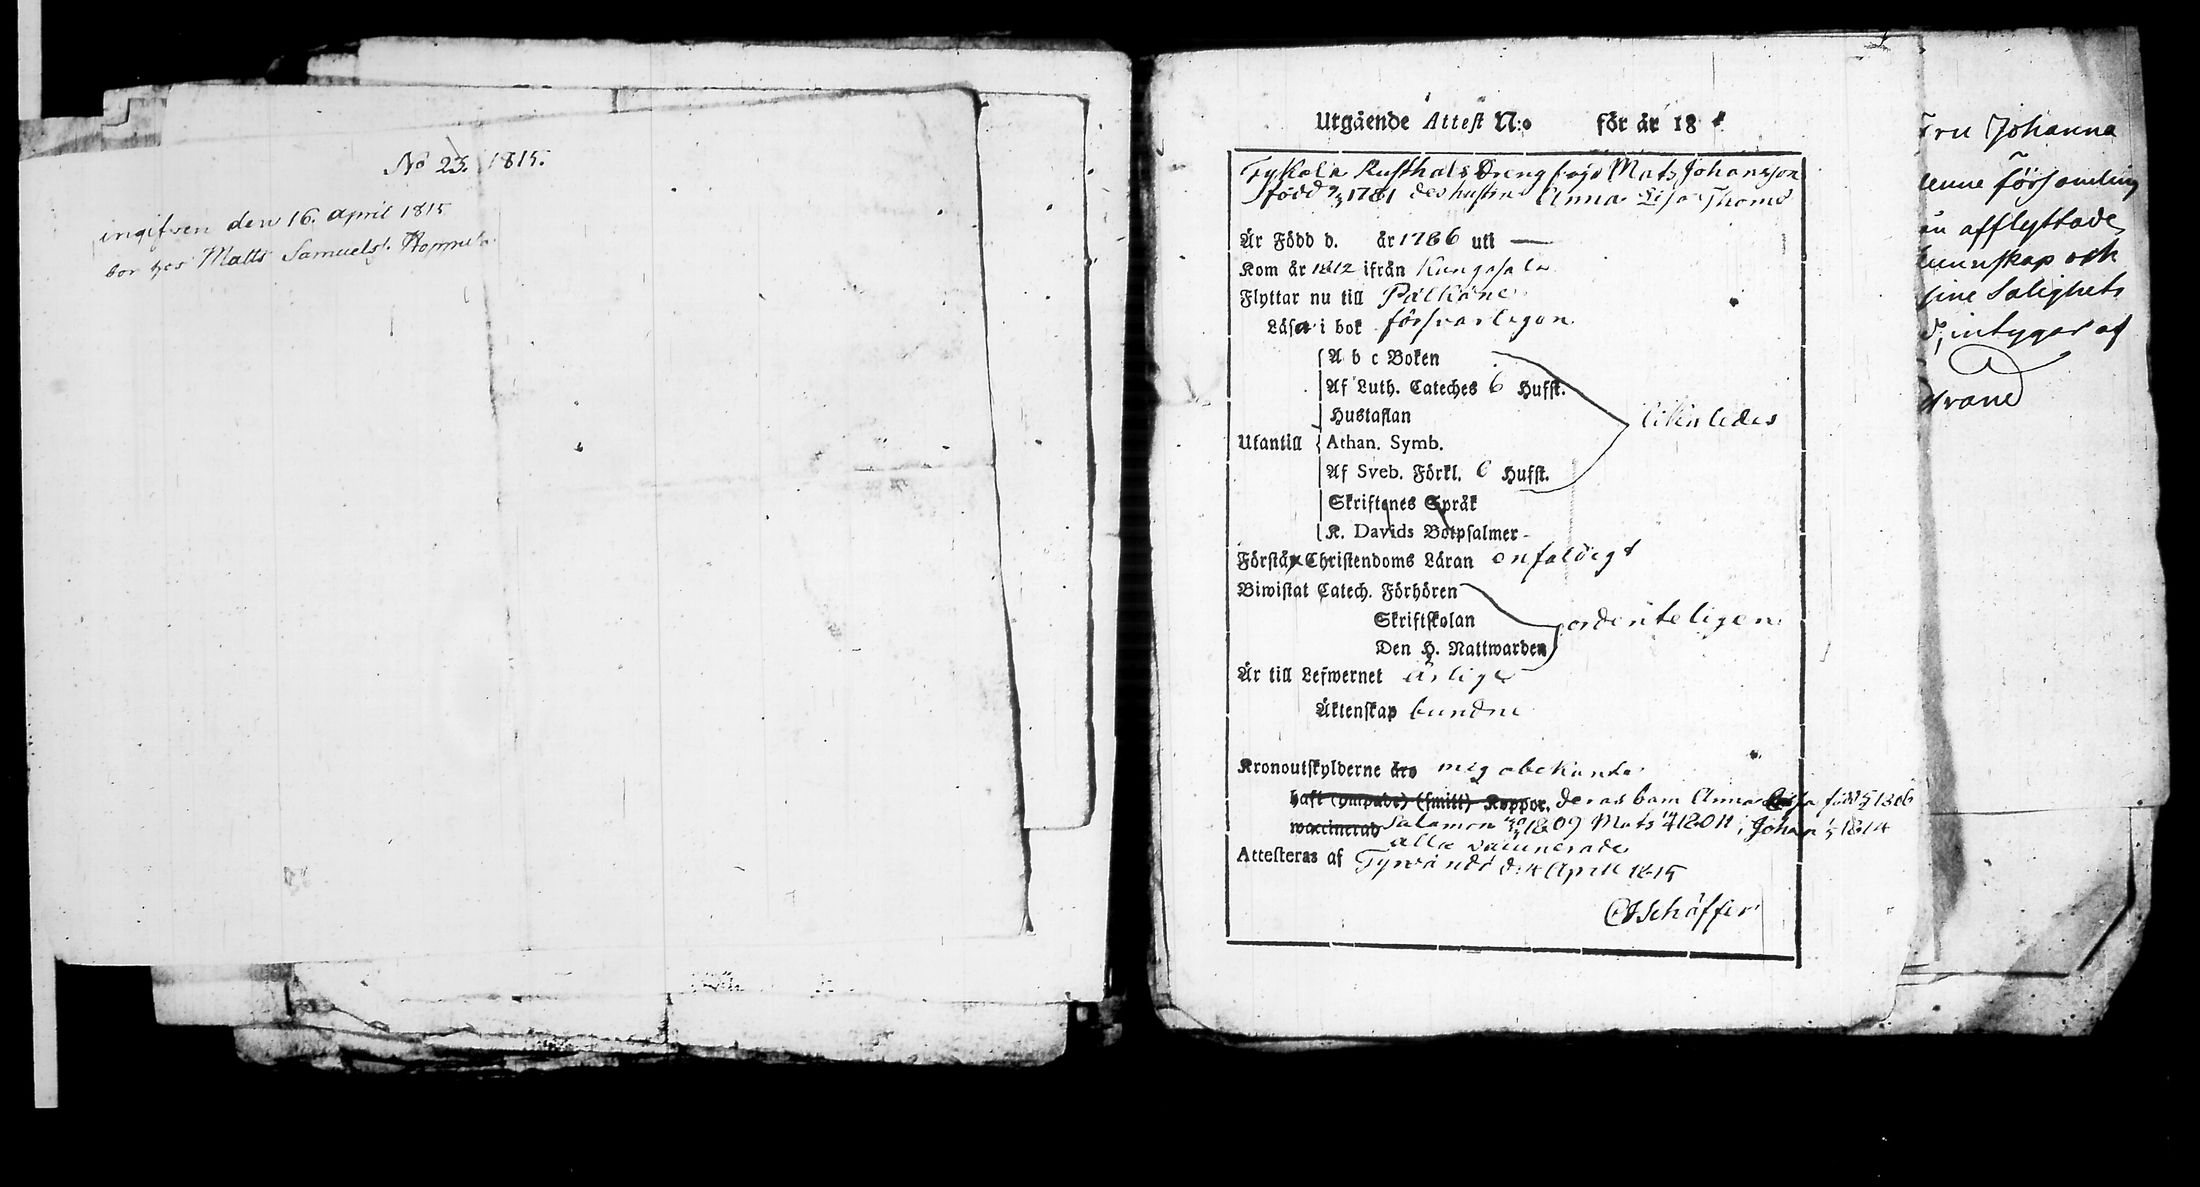 No 23. 1815.
ingifven den 16. April 1815
bor hos Matts Samuels.
Utgående Attest N:o för år 18
Rusthåls Dreng Mats Johansson
född 1781 des hustru Anna Lisa Thoms
Är Född d. år 1786 uti —
Kom år 1812 ifrån Kangasala
Flyttar nu till Pälkäne
Läsa i bok försvarligen
A b c Boken
Af Luth. Cateches 6 Hufst.
Hustaflan
likaledes
Utantill Athan. Symb.
Af Sveb. Förkl. 6 Hufst.
Skriftenes Språk
K. Davids Botpsalmer
Förstå Christendoms Läran enfaldigt
Biwistat Catech. Förhören
Skriftskolan ordenteligen
Den H. Nattwarden
Är till Lefwernet ärlige
Äktenskap bundne
Kronoutskylderne äro mig obekante
haft (ympade) (smitt) Koppor, deras barn Anna Lisa född 1806
waccinerad Salamon 1809 Mats 1811, Johan 1814
alla vaccinerade
Attesteras af Tyrvändö d. 4 April 1815
Schäffer
Fru Johanna
denne församling
afflyttade
kunskap och
sine Salighets
intygar af